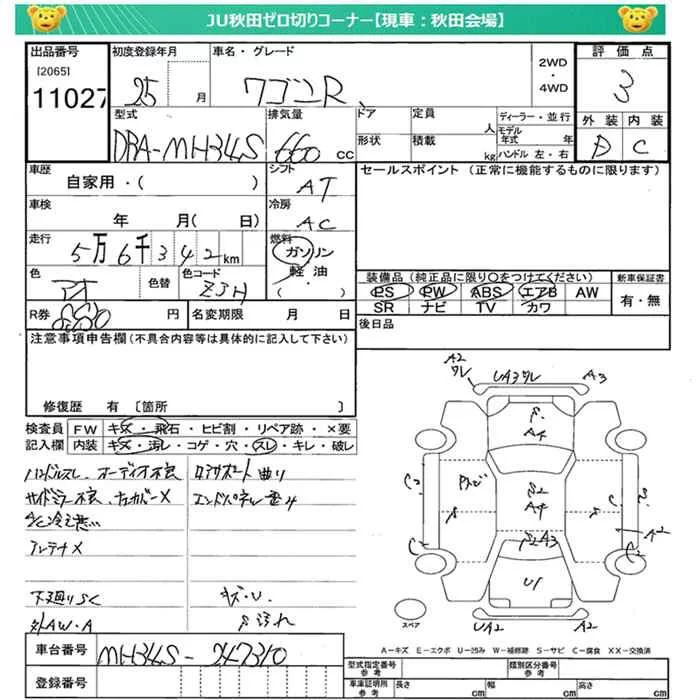 JU秋田ゼロ切りコーナー【現車：秋田会場】
出品番号
[2065]
11027
初度登録年月
25 月
車名・グレード
ワゴンR
2WD
・
4WD
評価点
3
外装 内装
D C
型式
DBA-MH34S
排気量
660 cc
ドア
形状
定員 人
積載 kg
ディーラー・並行
モデル年式 年
ハンドル 左・右
車歴
自家用・( )
シフト
AT
セールスポイント (正常に機能するものに限ります)
車検
年 月( 日)
冷房
AC
走行
5万6千342km
燃料
ガソリン
軽・油
( )
色
色替
色コード
ZJH
装備品 (純正品に限り〇をつけてください)
PS PW ABS エアB AW
SR ナビ TV カワ
新車保証書
有・無
R券
円
名変期限 月 日
後日品
注意事項申告欄(不具合内容等は具体的に記入して下さい)
修復歴 有 〔箇所 〕
検査員 FW キズ・飛石・ヒビ割・リペア跡・×要
記入欄 内装 キズ・汚レ・コゲ・穴・スレ・キレ・破レ
ハンドルスレ、オーディオ不良
サイドミラー不良、
アンテナ×
下廻りSC
外AW・A
エンドパネル歪み
キズ・U
S汚れ
A2
ワレ
UA3ワレ
A3
S
A4
S2
A4
SA3
U1
C2
C2
A2
C2
UA2
A2
スペア
A－キズ E－エクボ U－凹み W－補修跡 S－サビ C－腐食 XX－交換済
車台番号
MH34S-247310
登録番号
型式指定番号
参考
類別区分番号
参考
車庫証明所
参考
長さ cm 幅 cm 高さ cm